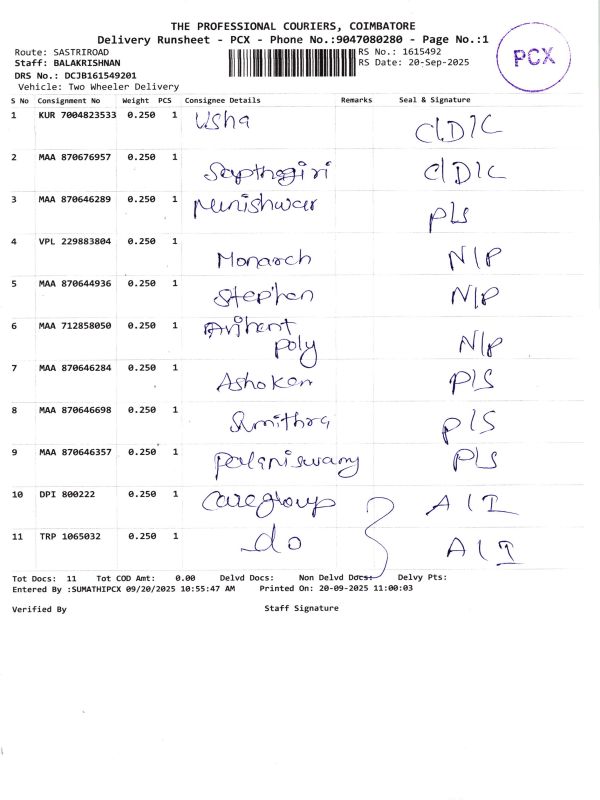 THE PROFESSIONAL COURIERS, COIMBATORE
Delivery Runsheet - PCX - Phone No.:9047080280 - Page No.:1
Route: SASTRIROAD RS No.: 1615492
Staff: BALAKRISHNAN RS Date: 20-Sep-2025
DRS No.: DCJB161549201
Vehicle: Two Wheeler Delivery
PCX
S No Consignment No Weight PCS Consignee Details Remarks Seal & Signature
1 KUR 7004823533 0.250 1 Usha C/D/C
2 MAA 870676957 0.250 1 Sapthagiri C/D/C
3 MAA 870646289 0.250 1 Munishwar P/S
4 VPL 229883804 0.250 1 Monarch N/P
5 MAA 870644936 0.250 1 Stephen N/P
6 MAA 712858050 0.250 1 Arihant
poly N/P
7 MAA 870646284 0.250 1 Ashokan P/S
8 MAA 870646698 0.250 1 Sumithra P/S
9 MAA 870646357 0.250 1 Palaniswamy P/S
10 DPI 800222 0.250 1 Caregroup A/I
11 TRP 1065032 0.250 1 do A/I
Tot Docs: 11 Tot COD Amt: 0.00 Delvd Docs: Non Delvd Docs: Delvy Pts:
Entered By :SUMATHIPCX 09/20/2025 10:55:47 AM Printed On: 20-09-2025 11:00:03
Verified By Staff Signature